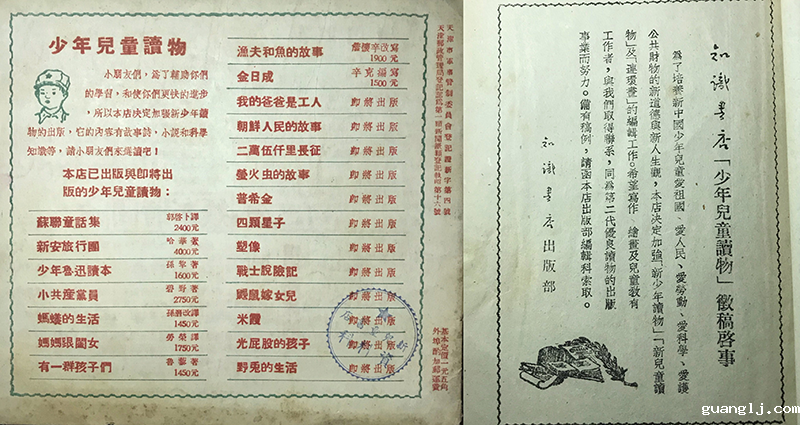 少年兒童讀物
小朋友們，爲了輔助你們
的學習，和使你們更快的進步
，所以本店決定加强新少年讀
物的出版，它的內容有故事詩，小說和科學
知識等，請小朋友們來選讀吧！
本店已出版與即將出
版的少年兒童讀物：
蘇聯童話集 郭啓卜譯 2400元
新安旅行團 哈華著 4000元
少年魯迅讀本 孫犂著 1600元
小共產黨員 碧野著 2750元
螞蟻的生活 改譯 1450元
媽媽跟閨女 勞榮譯 1750元
有一群孩子們 魯藜著 1450元
漁夫和魚的故事 改寫 1900元
金日成 辛克編寫 1500元
我的爸爸是工人 即將出版
朝鮮人民的故事 即將出版
二萬伍仟里長征 即將出版
螢火虫的故事 即將出版
普希金 即將出版
四顆星子 即將出版
塑像 即將出版
戰士脫險記 即將出版
鼹鼠嫁女兒 即將出版
米霞 即將出版
光屁股的孩子 即將出版
野兎的生活 即將出版
天津市軍事管制委員會登記證新字第四號
基本定價一元五角
外埠酌加郵運費
知識書店「少年兒童讀物」徵稿啓事
爲了培養新中國少年兒童愛祖國、愛人民、愛勞動、愛科學、愛護
公共財物的新道德與新人生觀，本店决定加强「新少年讀物」「新兒童讀
物」及「連環畫」的編輯工作。希望寫作、繪畫及兒童教育
工作者，與我們取得聯系，同爲第二代優良讀物的出版
事業而努力。備有稿例，請函本店出版部編輯科索取。
知識書店出版部
guanglj.com